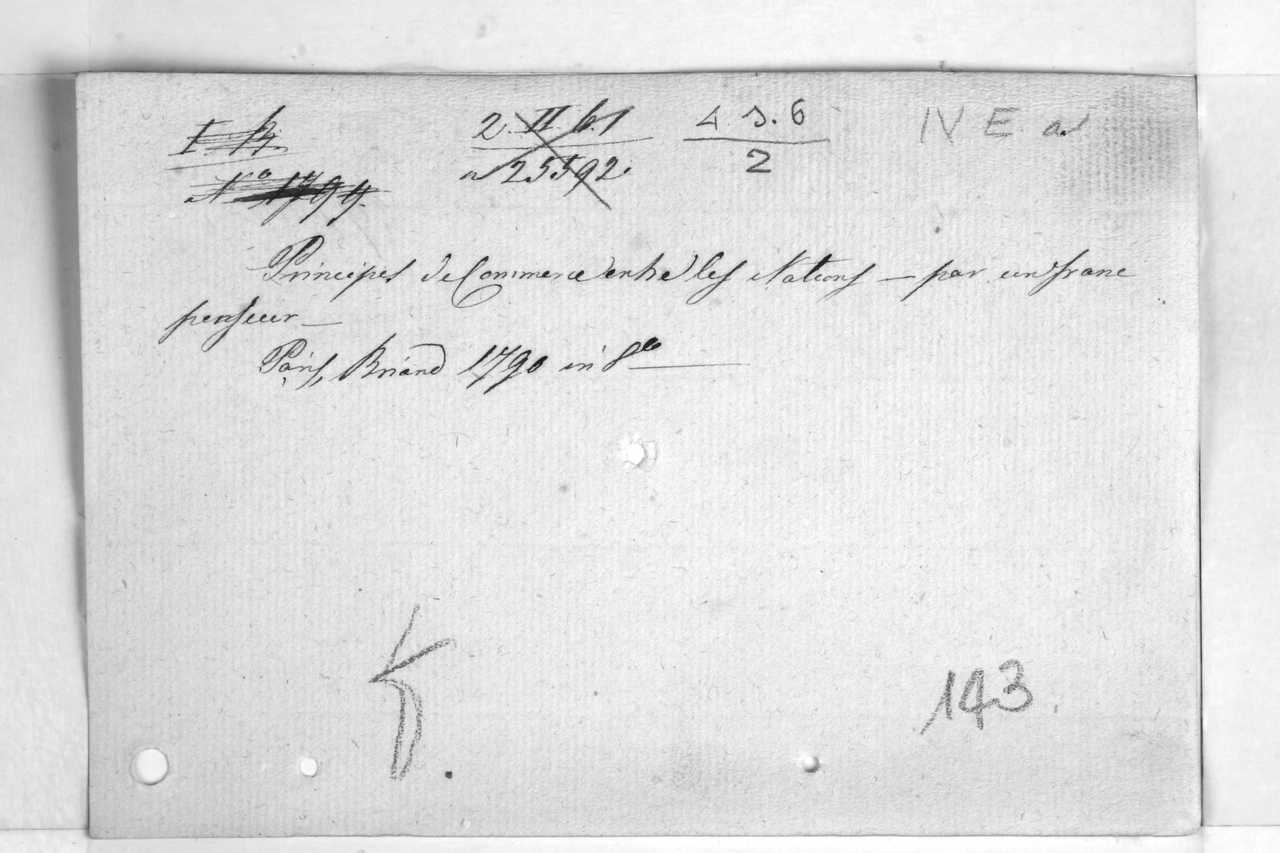 2. II 6.1
4 s. 6
IV E. a.
No 1794.
25592.
2
Principes de Commerce entre les Nations — par un franc
penseur —
Paris, Briand 1790 in 8o
143.